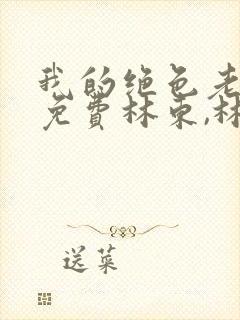 我的绝色老
免费林东,林
送菜